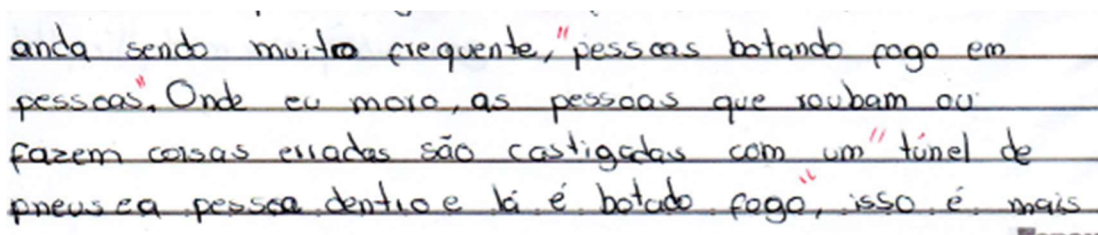 anda sendo muito frequente, "pessoas botando fogo em
pessoas". Onde eu moro, as pessoas que roubam ou
fazem coisas erradas são castigadas com um "túnel de
pneus e a pessoa dentro e lá é botado fogo", isso é mais